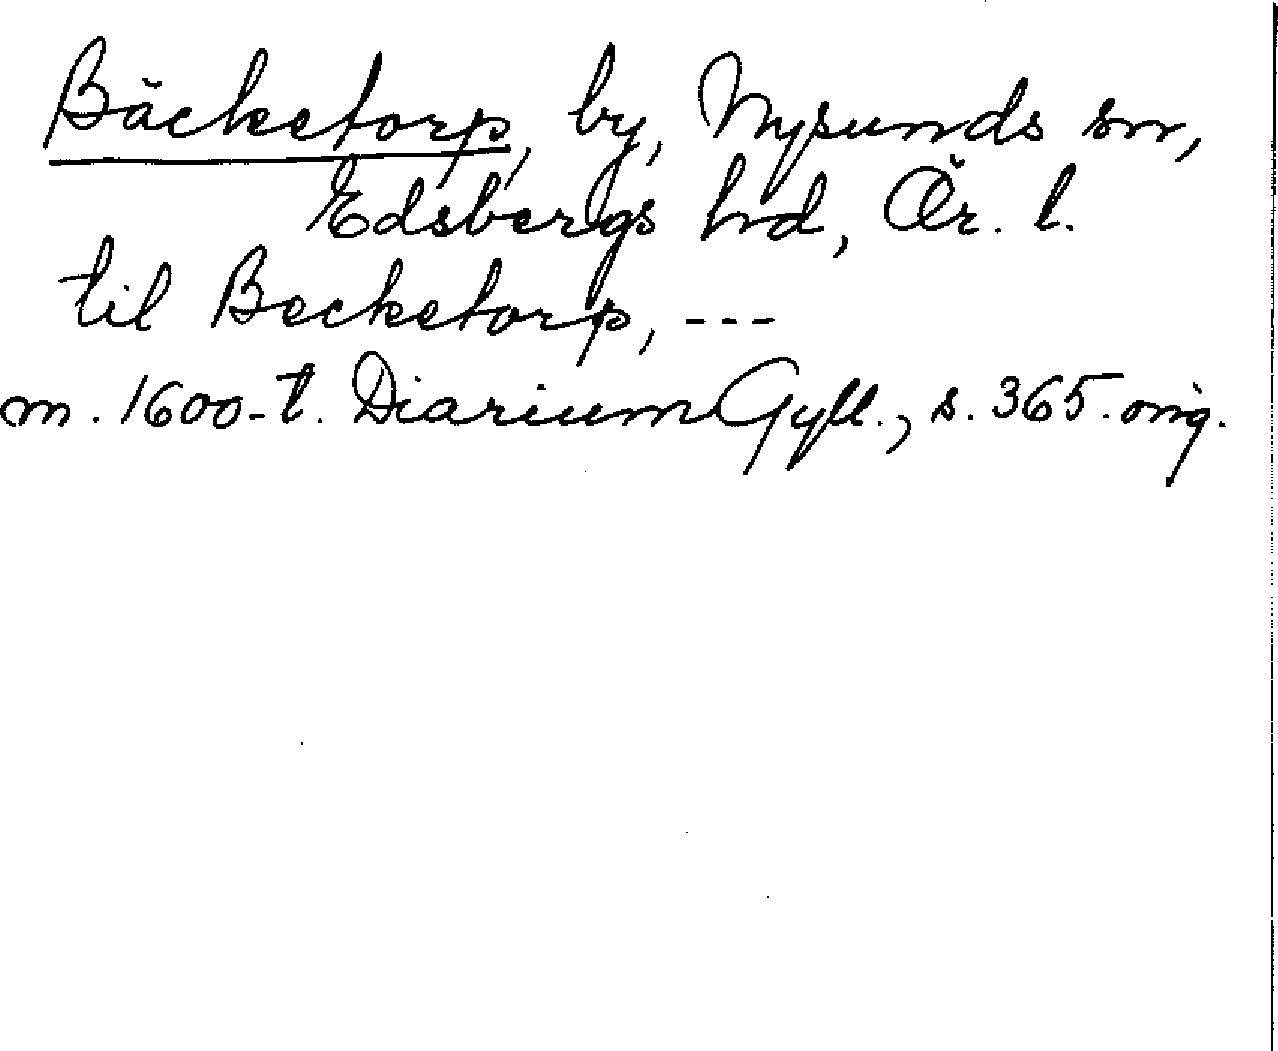 Bäcketorp, by, Nysunds sn,
Edsbergs hd, Ör. l.
til Becketorp, ---
m. 1600-t. Diarium Gyll., s. 365. orig.